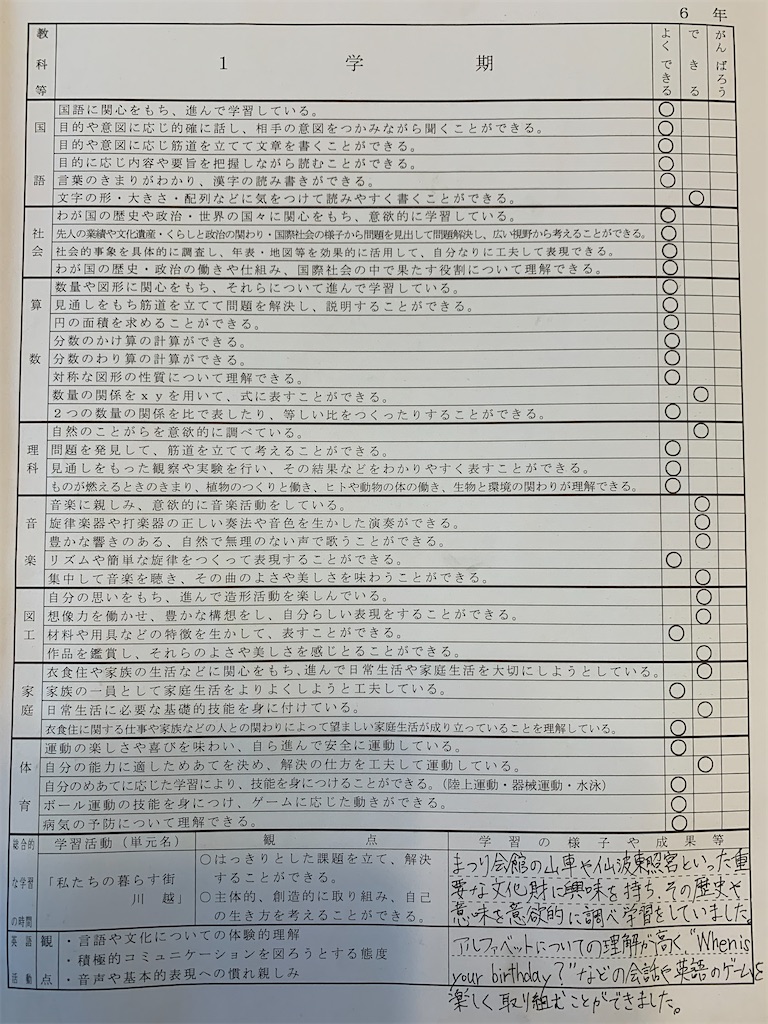 6 年
教科等
1 学 期
よくできる
できる
がんばろう
国語
国語に関心をもち、進んで学習している。 ○
目的や意図に応じ的確に話し、相手の意図をつかみながら聞くことができる。 ○
目的や意図に応じ筋道を立てて文章を書くことができる。 ○
目的に応じ内容や要旨を把握しながら読むことができる。 ○
言葉のきまりがわかり、漢字の読み書きができる。 ○
文字の形・大きさ・配列などに気をつけて読みやすく書くことができる。 ○
社会
わが国の歴史や政治・世界の国々に関心をもち、意欲的に学習している。 ○
先人の業績や文化遺産・くらしと政治の関わり・国際社会の様子から問題を見出して問題解決し、広い視野から考えることができる。 ○
社会的事象を具体的に調査し、年表・地図等を効果的に活用して、自分なりに工夫して表現できる。 ○
わが国の歴史・政治の働きや仕組み、国際社会の中で果たす役割について理解できる。 ○
算数
数量や図形に関心をもち、それらについて進んで学習している。 ○
見通しをもち筋道を立てて問題を解決し、説明することができる。 ○
円の面積を求めることができる。 ○
分数のかけ算の計算ができる。 ○
分数のわり算の計算ができる。 ○
対称な図形の性質について理解できる。 ○
数量の関係をxyを用いて、式に表すことができる。 ○
2つの数量の関係を比で表したり、等しい比をつくったりすることができる。 ○
理科
自然のことがらを意欲的に調べている。 ○
問題を発見して、筋道を立てて考えることができる。 ○
見通しをもった観察や実験を行い、その結果などをわかりやすく表すことができる。 ○
ものが燃えるときのきまり、植物のつくりと働き、ヒトや動物の体の働き、生物と環境の関わりが理解できる。 ○
音楽
音楽に親しみ、意欲的に音楽活動をしている。 ○
旋律楽器や打楽器の正しい奏法や音色を生かした演奏ができる。 ○
豊かな響きのある、自然で無理のない声で歌うことができる。 ○
リズムや簡単な旋律をつくって表現することができる。 ○
集中して音楽を聴き、その曲のよさや美しさを味わうことができる。 ○
図工
自分の思いをもち、進んで造形活動を楽しんでいる。 ○
想像力を働かせ、豊かな構想をし、自分らしい表現をすることができる。 ○
材料や用具などの特徴を生かして、表すことができる。 ○
作品を鑑賞し、それらのよさや美しさを感じとることができる。 ○
家庭
衣食住や家族の生活などに関心をもち、進んで日常生活や家庭生活を大切にしようとしている。 ○
家族の一員として家庭生活をよりよくしようと工夫している。 ○
日常生活に必要な基礎的技能を身に付けている。 ○
衣食住に関する仕事や家族などの人との関わりによって望ましい家庭生活が成り立っていることを理解している。 ○
体育
運動の楽しさや喜びを味わい、自ら進んで安全に運動している。 ○
自分の能力に適しためあてを決め、解決の仕方を工夫して運動している。 ○
自分のめあてに応じた学習により、技能を身につけることができる。(陸上運動・器械運動・水泳) ○
ボール運動の技能を身につけ、ゲームに応じた動きができる。 ○
病気の予防について理解できる。 ○
総合的な学習の時間
学習活動(単元名)
観 点
学習の様子や成果等
「私たちの暮らす街
川 越」
○はっきりとした課題を立て、解決
することができる。
○主体的、創造的に取り組み、自己
の生き方を考えることができる。
まつり会館の山車や仙波東照宮といった重
要な文化財に興味を持ち、その歴史や
意味を意欲的に調べ学習をしていました。
英語活動
観点
・言語や文化についての体験的理解
・積極的コミュニケーションを図ろうとする態度
・音声や基本的表現への慣れ親しみ
アルファベットについての理解が高く、"When is
your birthday?"などの会話や英語のゲームを
楽しく取り組むことができました。